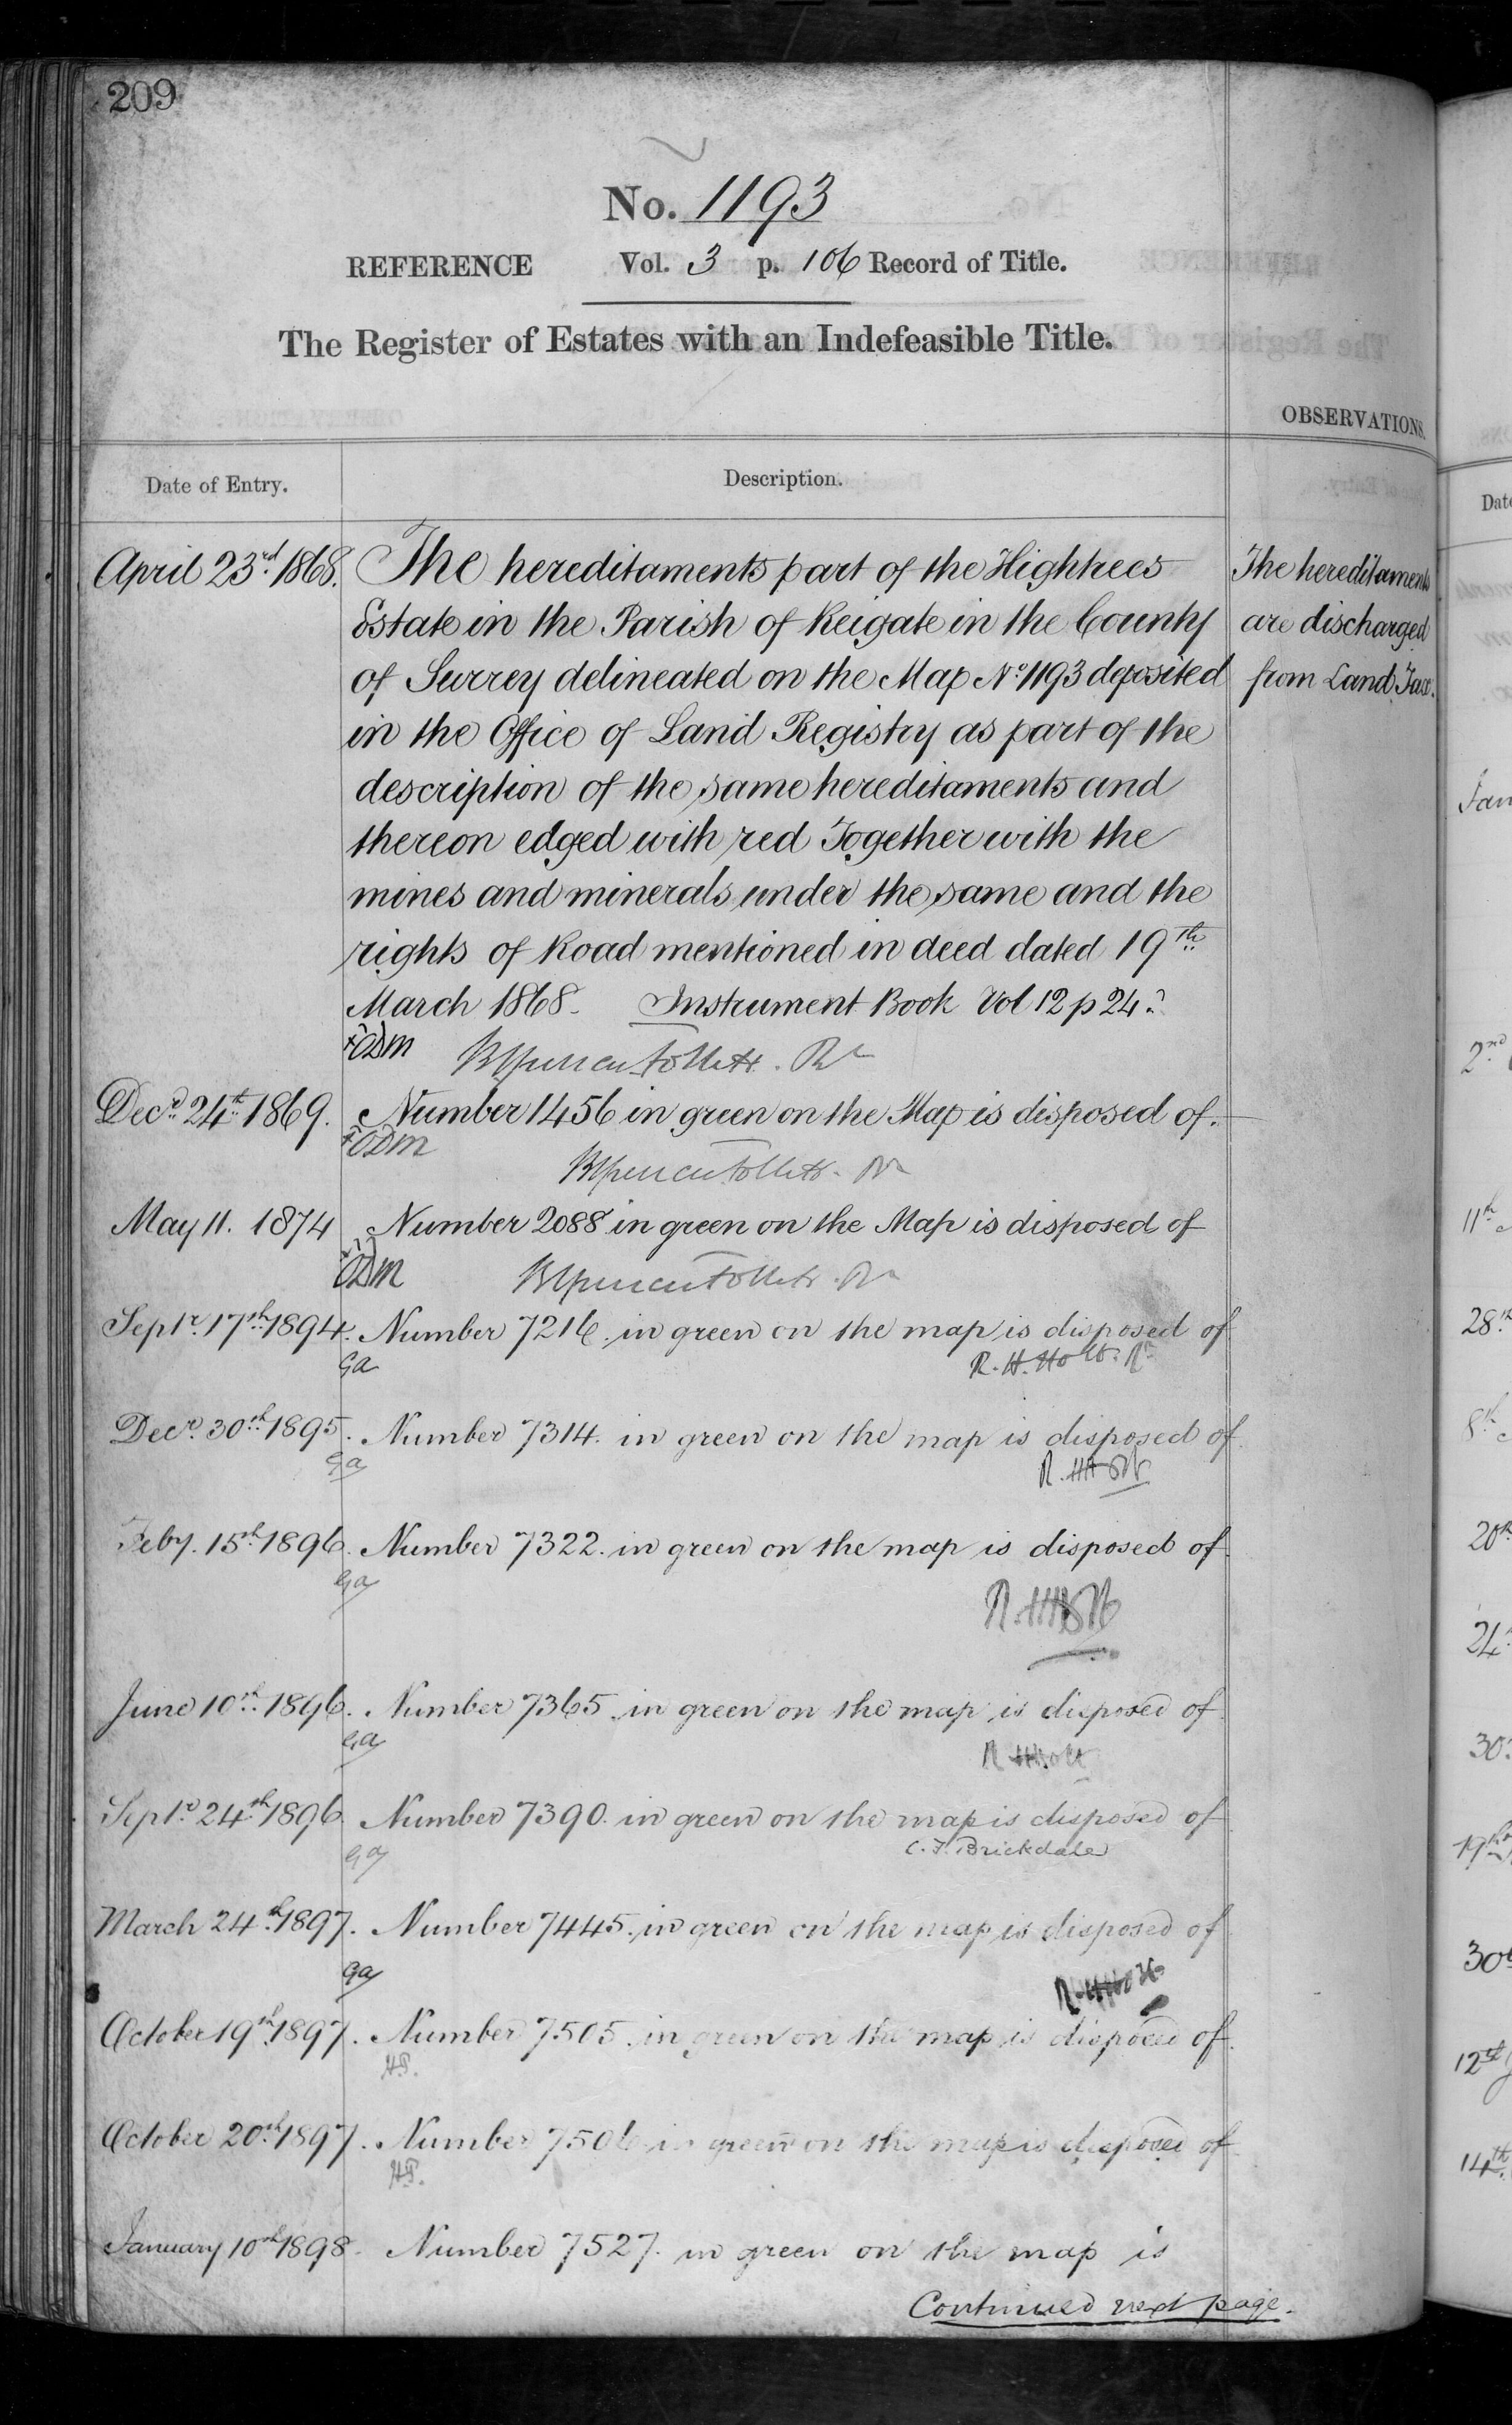 209
No. 1193
REFERENCE Vol. 3 p. 106 Record of Title.
The Register of Estates with an Indefeasible Title.
OBSERVATIONS.
Date of Entry. Description.
April 23rd 1868. The hereditaments part of the Hightrees
Estate in the Parish of Reigate in the County
of Surrey delineated on the Map No 1193 deposited
in the Office of Land Registry as part of the
description of the same hereditaments and
thereon edged with red Together with the
mines and minerals under the same and the
rights of Road mentioned in deed dated 19th
March 1868. Instrument Book Vol 12 p 24.
The hereditaments
are discharged
from Land Tax.
ODM
Decr 24th 1869. Number 1456 in green on the Map is disposed of.
ODM
May 11. 1874 Number 2088 in green on the Map is disposed of
ODM
Septr. 17th 1894. Number 7216 in green on the map is disposed of
Ga R. H. Holt. Rr
Decr. 30th 1895. Number 7314. in green on the map is disposed of
Ga R. H Holt
Feby. 15th 1896. Number 7322. in green on the map is disposed of.
Ga R. H Holt
June 10th 1896. Number 7365. in green on the map is disposed of.
Ga R H Holt
Septr. 24th 1896. Number 7390. in green on the map is disposed of
Ga C. F. Brickdale
March 24th 1897. Number 7445. in green on the map is disposed of
Ga R. H Holt
October 19th 1897. Number 7505. in green on the map is disposed of.
H.P.
October 20th 1897. Number 7506 in green on the map is disposed of
H.P.
January 10th 1898. Number 7527. in green on the map is
Continued next page.
Date
Jan
2nd
11th
28th
8th
20th
24
30
19th
30th
12th
14th